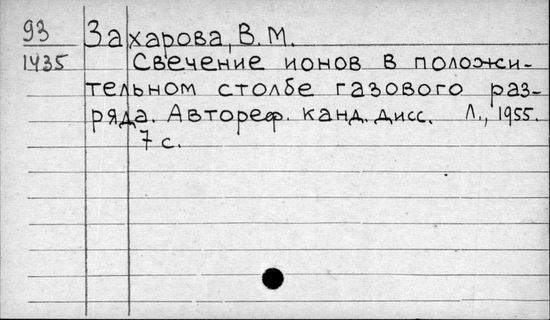 93 Захарова, В. М.
1435 Свечение ионов в положи-
тельном столбе газового раз-
ряда. Автореф. канд. дисс. Л., 1955.
7 с.